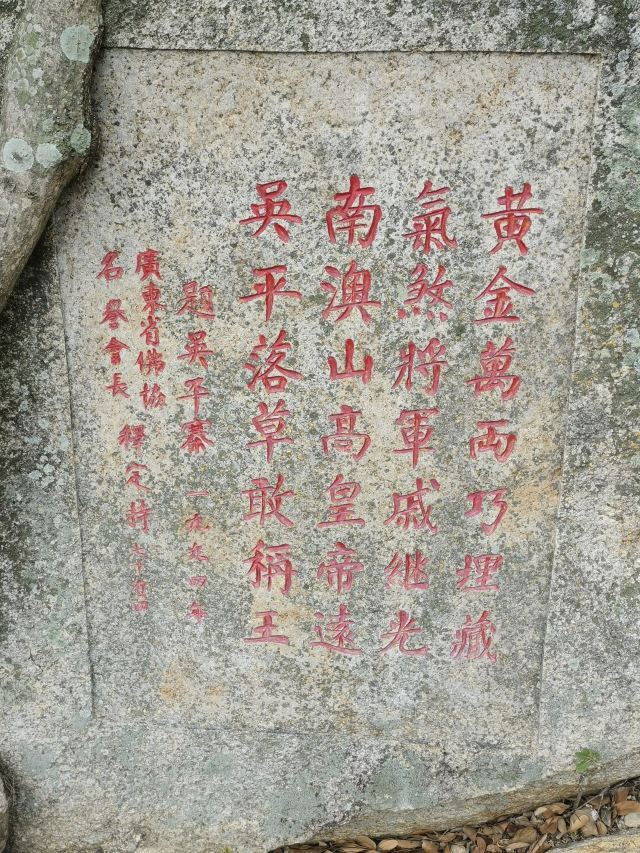 黄金萬両巧埋藏
氣煞將軍戚继光
南澳山高皇帝遠
吳平落草敢稱王
題吴平寨 一九九四年
廣東省佛協
名譽會長 釋定持 七十有四